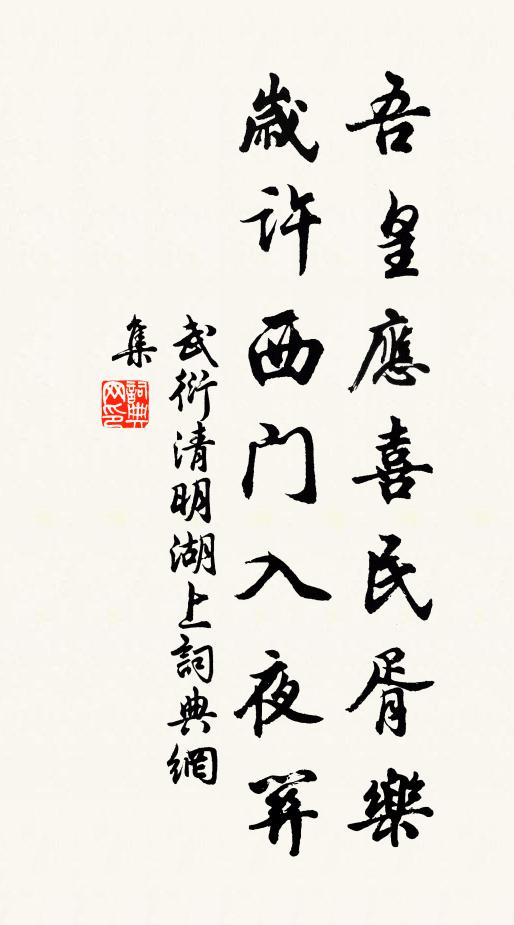 吾皇應喜民胥樂
歲許西门入夜開
武衍清明湖上詞典網
集
詞典网印